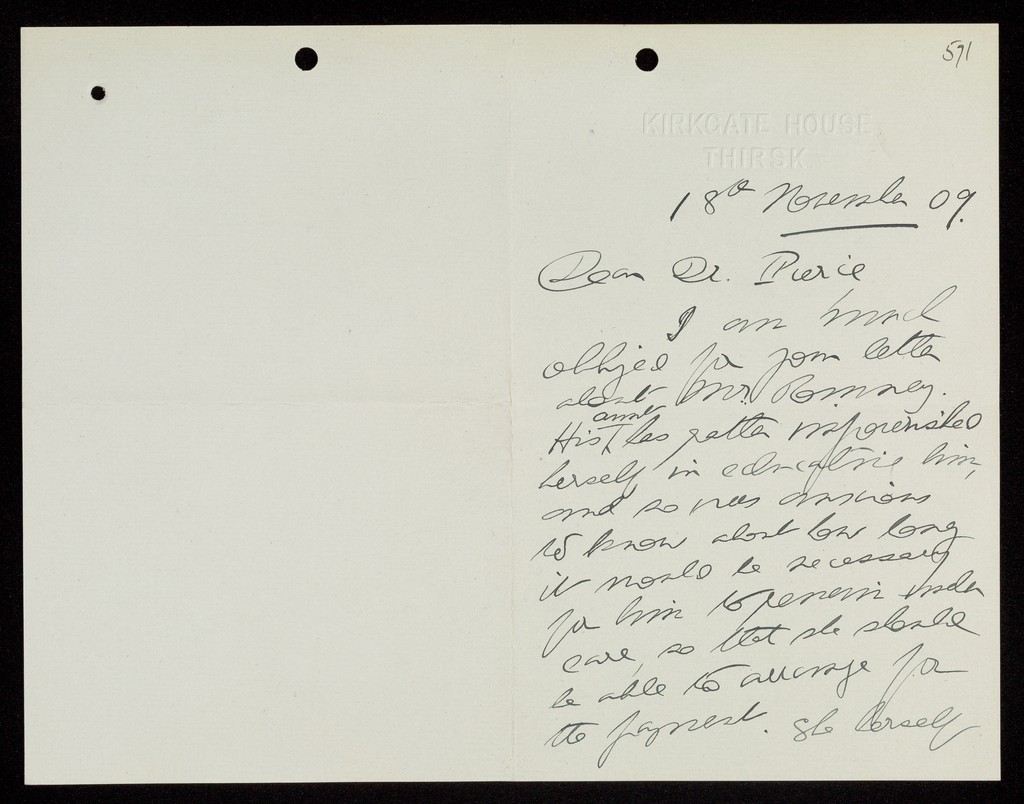 591
KIRKGATE HOUSE
THIRSK
18th November 09.
Dear Dr. Pierce
I am much
obliged for your letter
about Mr. Romney.
His aunt has rather impoverished
herself in educating him,
and so was anxious
to know about how long
it would be necessary
for him to remain under
care, so that she should
be able to arrange for
the payment. She herself